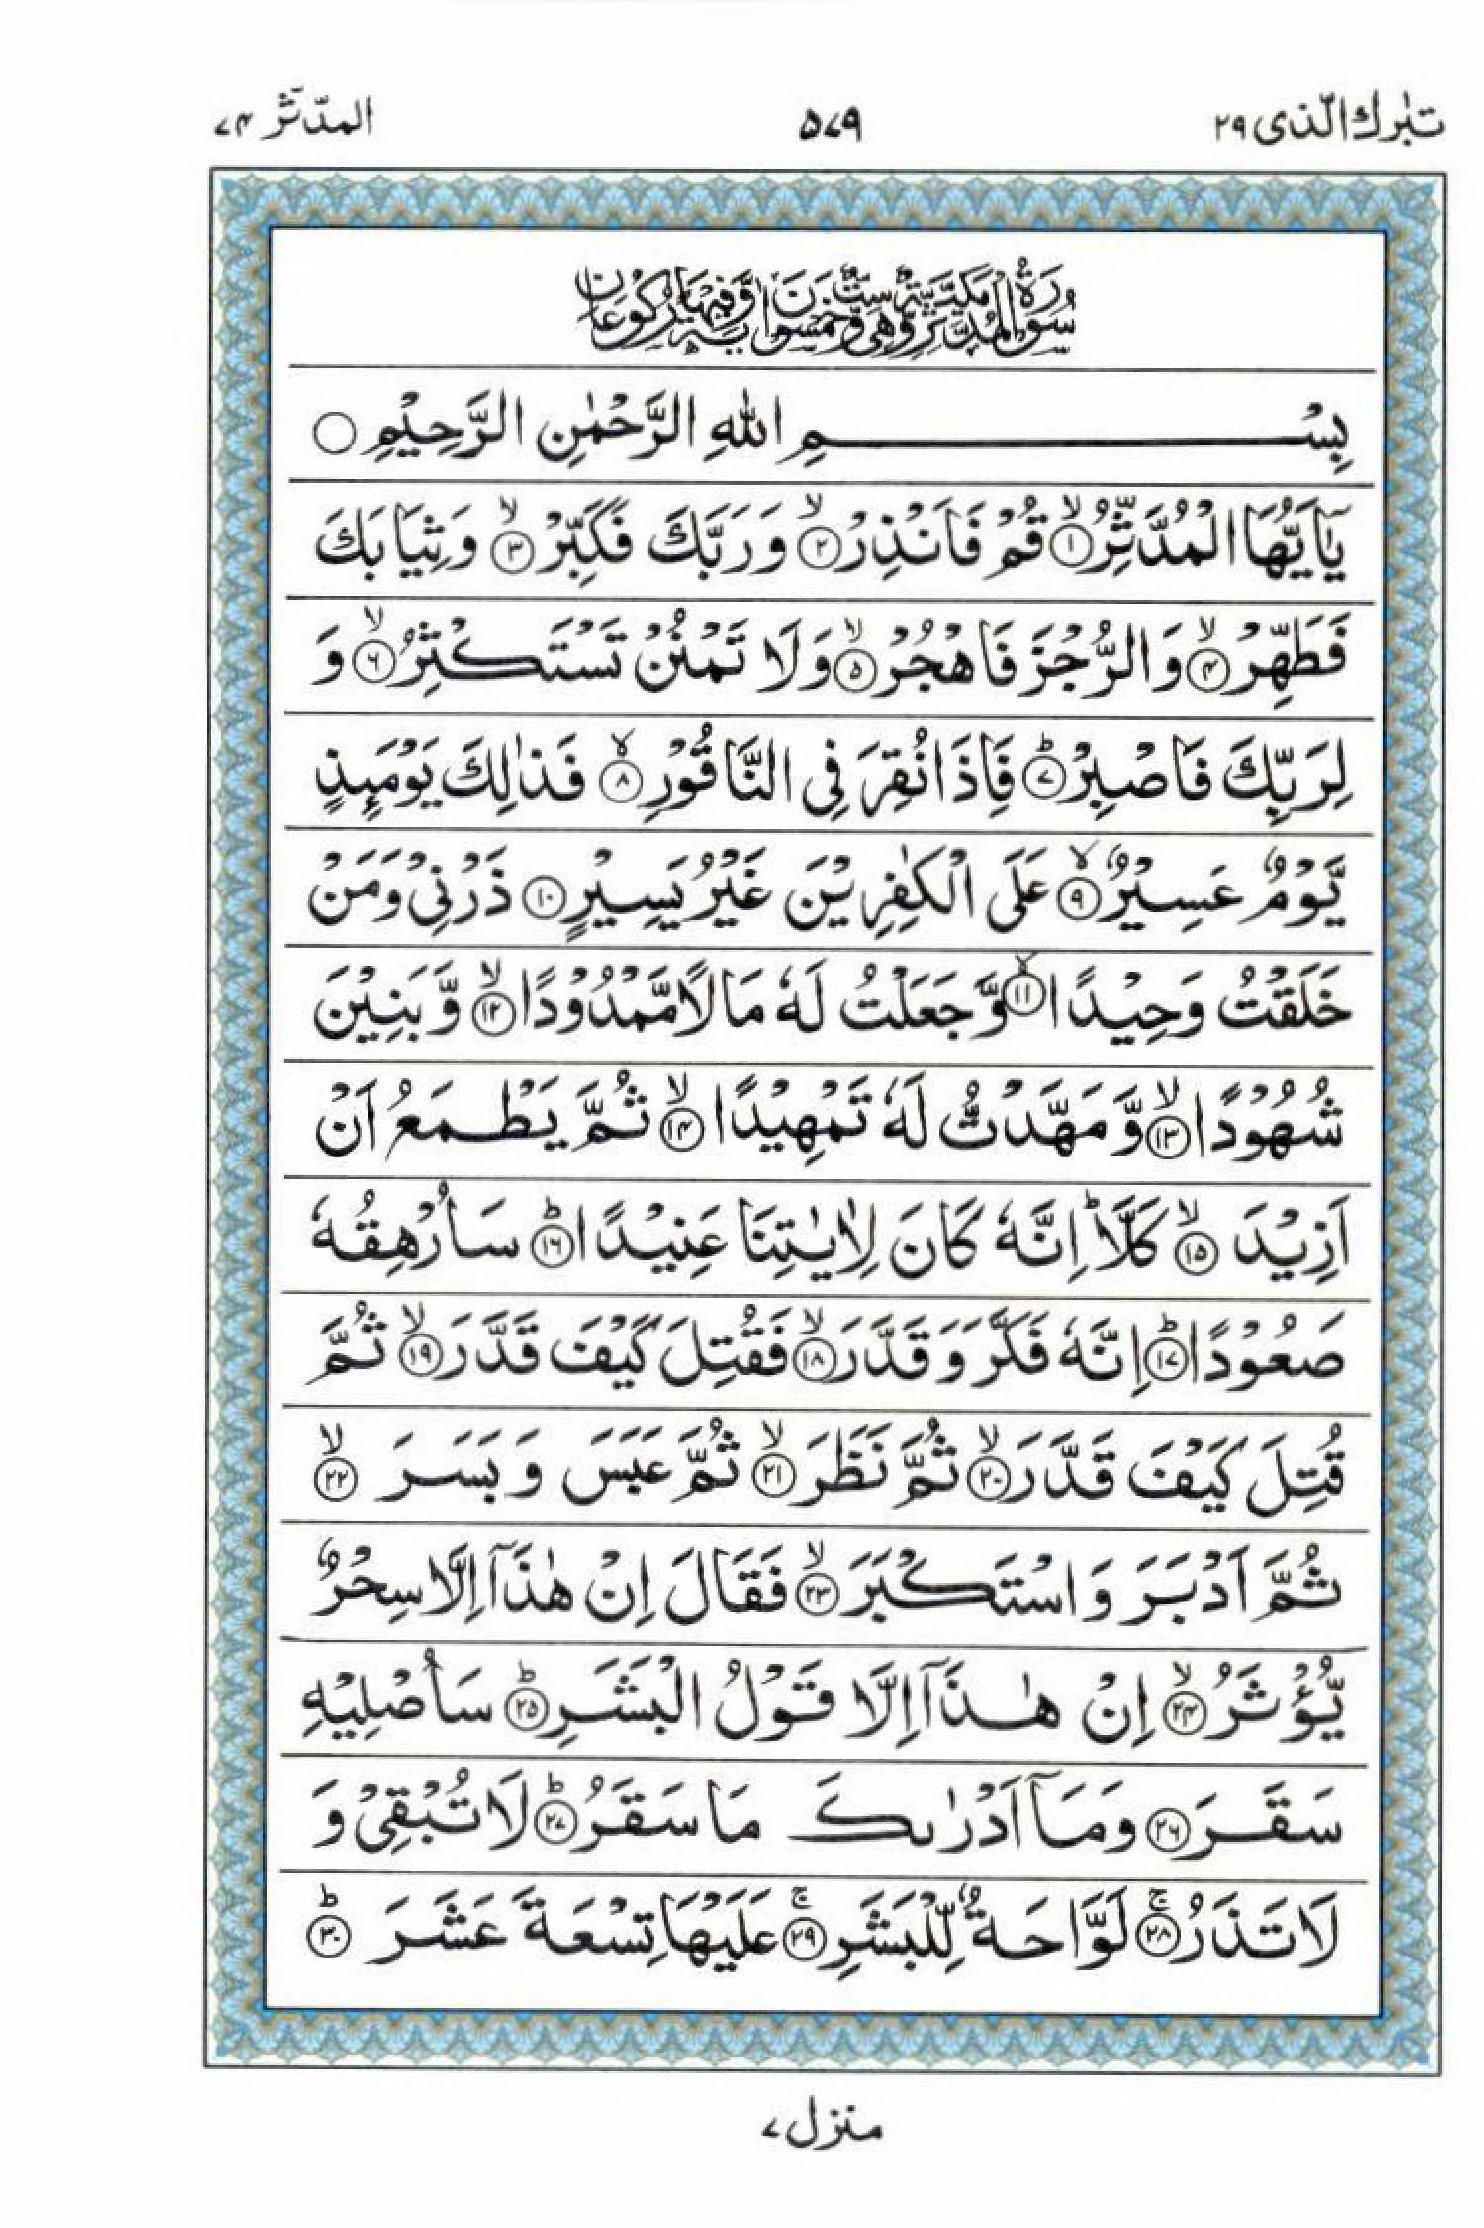 تبٰرك الّذى ٢٩
٥٧٩
المدّثّر ٧٤
سُوْرَةُ الْمُدَّثِّرِ مَكِّيَّةٌ وَّهِیَ سِتٌّ وَّخَمْسُوْنَ اٰيَةً وَّفِيْهَا رُكُوْعَانِ
بِسْمِ اللهِ الرَّحْمٰنِ الرَّحِيْمِ ○
يٰۤاَيُّهَا الْمُدَّثِّرُ ۙ﴿١﴾ قُمْ فَاَنْذِرْ ۙ﴿٢﴾ وَ رَبَّكَ فَكَبِّرْ ۙ﴿٣﴾ وَ ثِيَابَكَ
فَطَهِّرْ ۙ﴿٤﴾ وَ الرُّجْزَ فَاهْجُرْ ۙ﴿٥﴾ وَ لَا تَمْنُنْ تَسْتَكْثِرُ ۙ﴿٦﴾ وَ
لِرَبِّكَ فَاصْبِرْ ؕ﴿٧﴾ فَاِذَا نُقِرَ فِی النَّاقُوْرِ ۙ﴿٨﴾ فَذٰلِكَ يَوْمَئِذٍ
يَّوْمٌ عَسِيْرٌ ۙ﴿٩﴾ عَلَی الْكٰفِرِيْنَ غَيْرُ يَسِيْرٍ ﴿١٠﴾ ذَرْنِیْ وَ مَنْ
خَلَقْتُ وَحِيْدًا ۙ﴿١١﴾ وَّ جَعَلْتُ لَهٗ مَالًا مَّمْدُوْدًا ۙ﴿١٢﴾ وَّ بَنِيْنَ
شُهُوْدًا ۙ﴿١٣﴾ وَّ مَهَّدْتُّ لَهٗ تَمْهِيْدًا ۙ﴿١٤﴾ ثُمَّ يَطْمَعُ اَنْ
اَزِيْدَ ۙ﴿١٥﴾ كَلَّا ؕ اِنَّهٗ كَانَ لِاٰيٰتِنَا عَنِيْدًا ؕ﴿١٦﴾ سَاُرْهِقُهٗ
صَعُوْدًا ؕ﴿١٧﴾ اِنَّهٗ فَكَّرَ وَ قَدَّرَ ۙ﴿١٨﴾ فَقُتِلَ كَيْفَ قَدَّرَ ۙ﴿١٩﴾ ثُمَّ
قُتِلَ كَيْفَ قَدَّرَ ۙ﴿٢٠﴾ ثُمَّ نَظَرَ ۙ﴿٢١﴾ ثُمَّ عَبَسَ وَ بَسَرَ ۙ﴿٢٢﴾
ثُمَّ اَدْبَرَ وَ اسْتَكْبَرَ ۙ﴿٢٣﴾ فَقَالَ اِنْ هٰذَاۤ اِلَّا سِحْرٌ
يُّؤْثَرُ ۙ﴿٢٤﴾ اِنْ هٰذَاۤ اِلَّا قَوْلُ الْبَشَرِ ؕ﴿٢٥﴾ سَاُصْلِيْهِ
سَقَرَ ﴿٢٦﴾ وَ مَاۤ اَدْرٰىكَ مَا سَقَرُ ؕ﴿٢٧﴾ لَا تُبْقِیْ وَ
لَا تَذَرُ ۚ﴿٢٨﴾ لَوَّاحَةٌ لِّلْبَشَرِ ۚ﴿٢٩﴾ عَلَيْهَا تِسْعَةَ عَشَرَ ؕ﴿٣٠﴾
منزل ٧